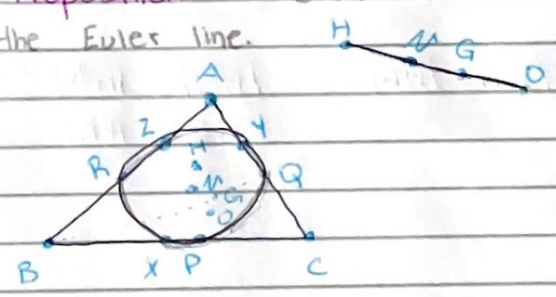 the Euler line.
H N G O
A
Z Y
H
R N Q
G
O
B X P C